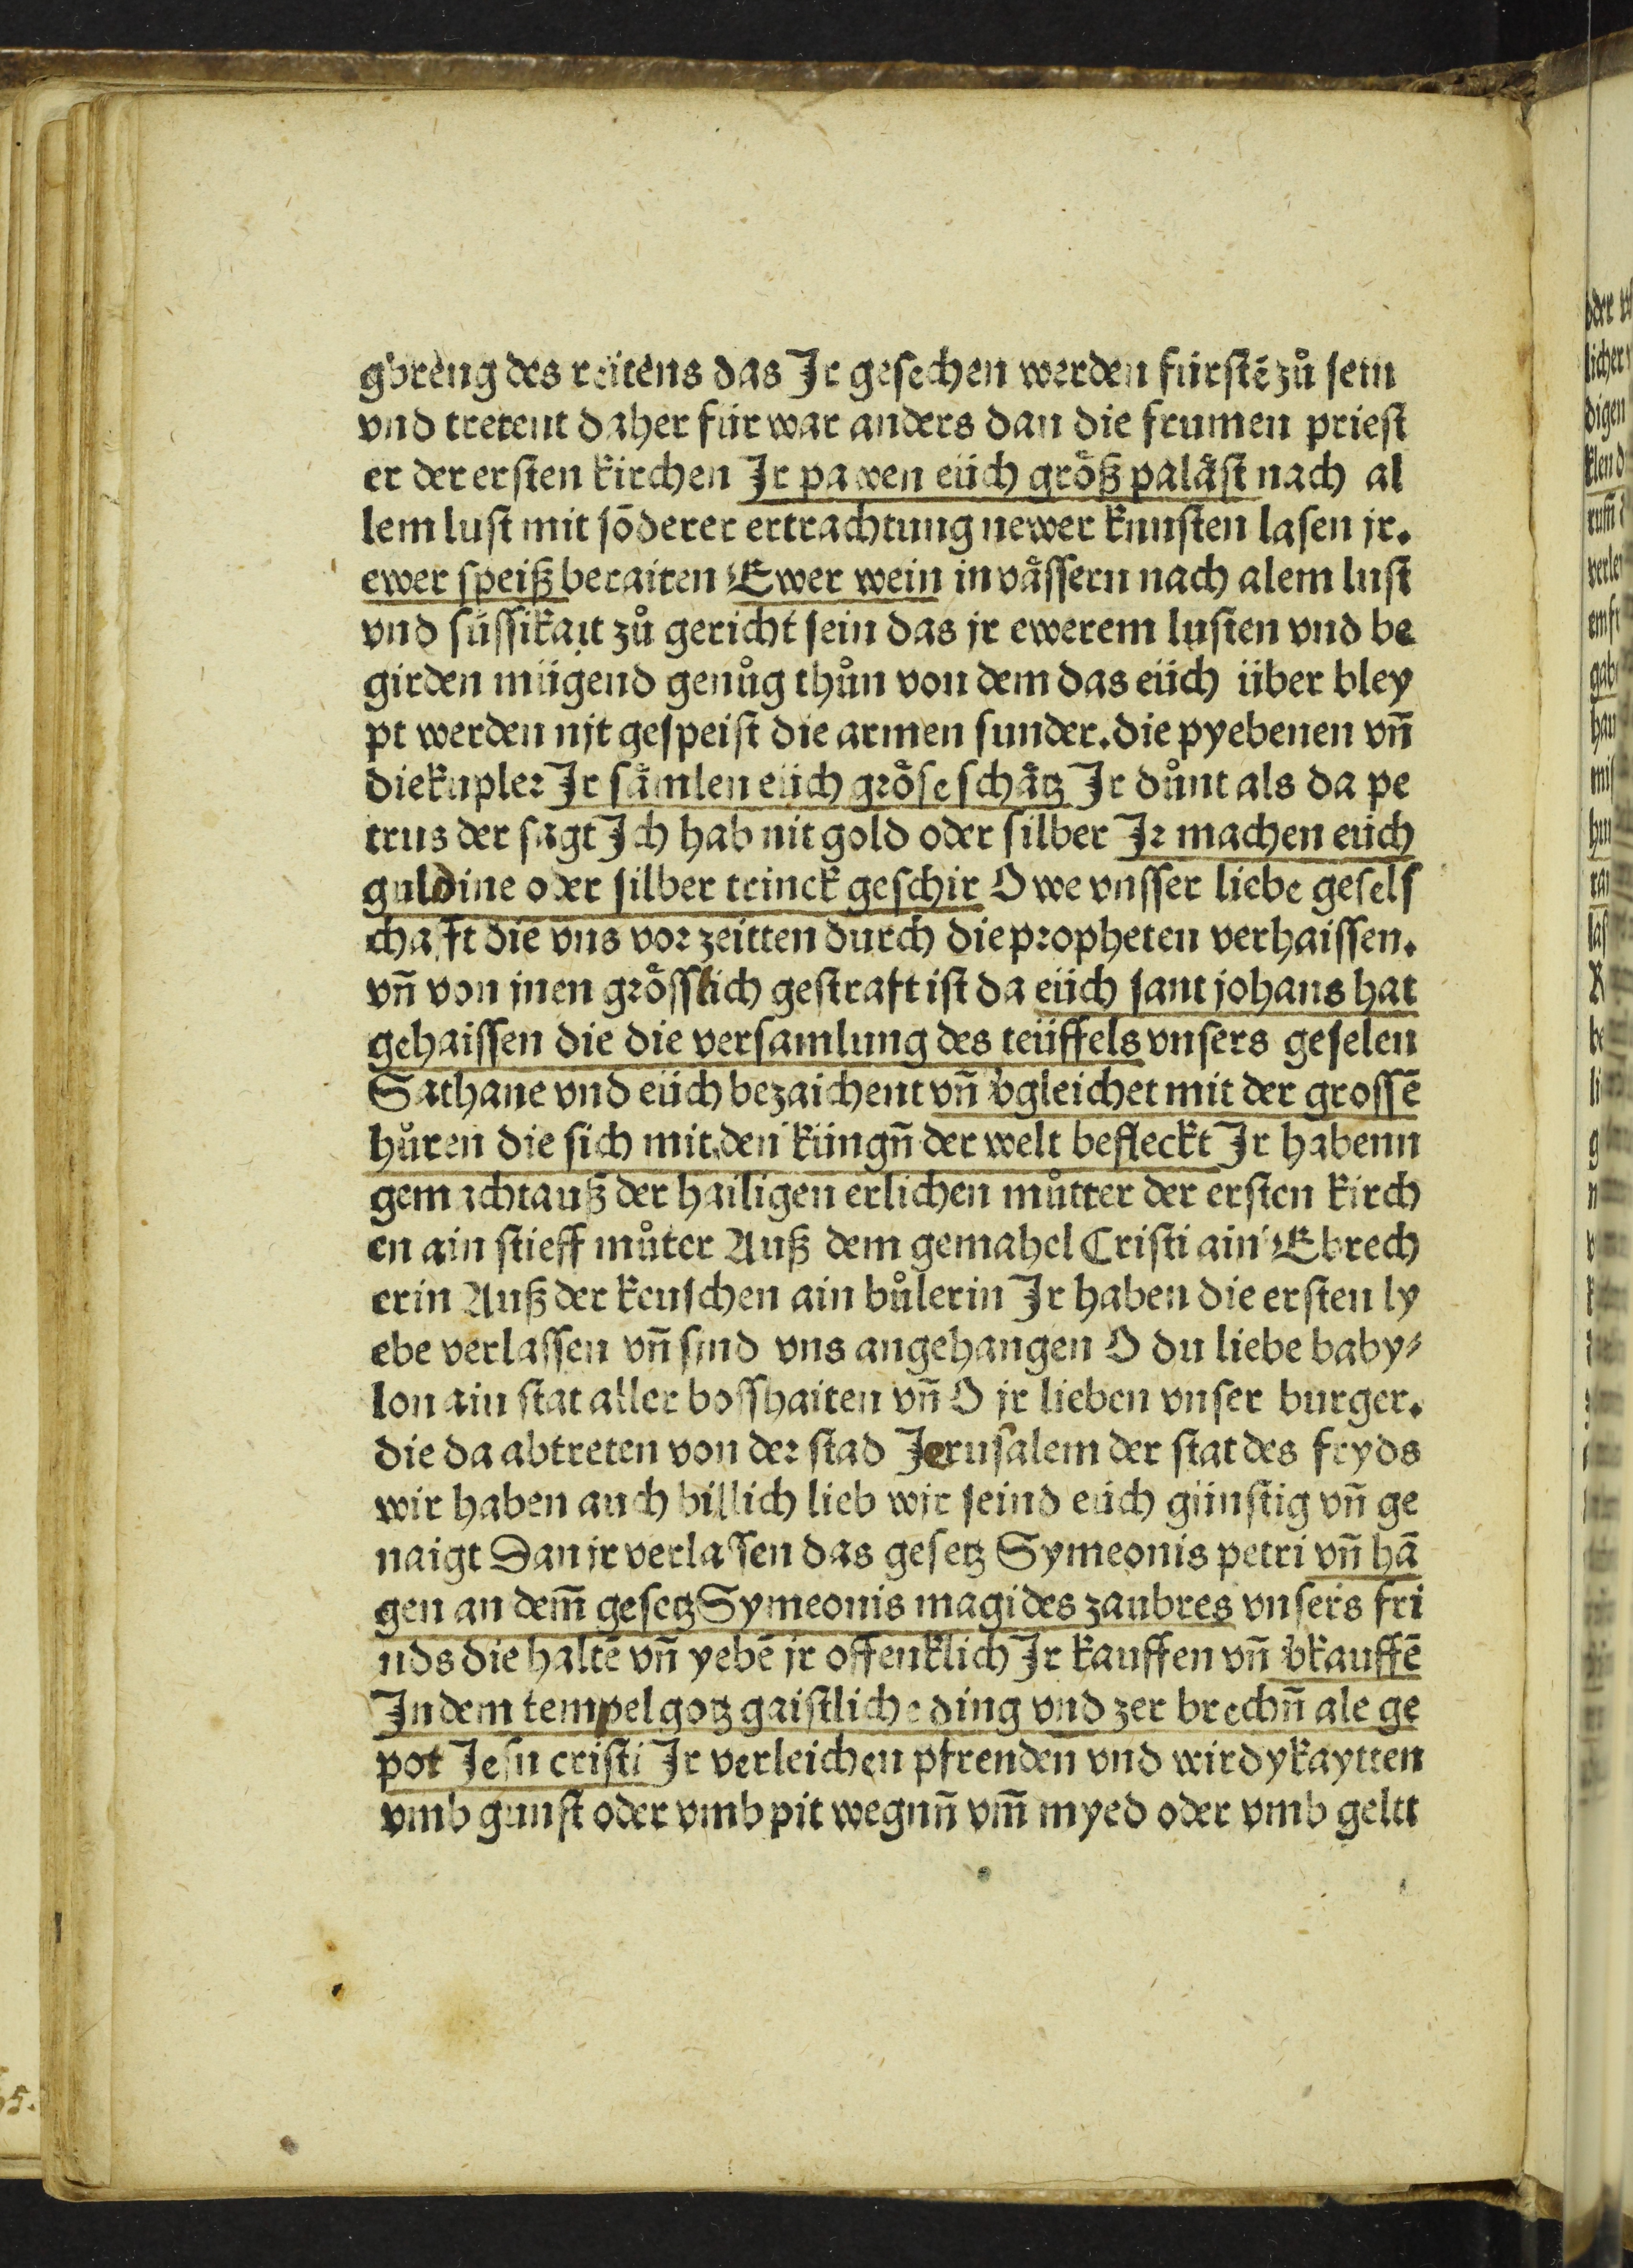 gbreng des reitens das Jr gesechen werden fürstē zů sein
vnd tretent daher für war anders dan die frumen priest
er der ersten kirchen Jr pawen eüch größ paläst nach al
lem lust mit sōderer ertrachtung newer kunsten lasen jr.
ewer speiß beraiten Ewer wein in vässern nach alem lust
vnd süssikait zů gericht sein das jr ewerem lusten vnd be
girden mügend genůg thůn von dem das eüch über bley
pt werden nit gespeist die armen sunder. die pyebenen vn̄
die kupler Jr sämlen eüch gröse schätz Jr důnt als da pe
trus der sagt Jch hab nit gold oder silber Jr machen eüch
guldine oder silber trinck geschir O we vnsser liebe gesels
chafft die vns vor zeitten durch die propheten verhaissen.
vn̄ von inen grösslich gestraft ist da eüch sant johans hat
gehaissen die die versamlung des teüffels vnsers geselen
Sathane vnd eüch bezaichent vn̄ v̓gleichet mit der grossē
hůren die sich mit den küngn̄ der welt befleckt Jr habenn
gemacht auß der hailigen erlichen můtter der ersten kirch
en ain stieff můter Auß dem gemahel Cristi ain Ebrech
erin Auß der keuschen ain bůlerin Jr haben die ersten ly
ebe verlassen vn̄ sind vns angehangen O du liebe baby⸗
lon ain stat aller bosshaiten vn̄ O jr lieben vnser burger.
die da abtreten von der stad Jerusalem der stat des fryds
wir haben auch billich lieb wir seind eüch günstig vn̄ ge
naigt Dan jr verlassen das gesetz Symeonis petri vn̄ hā
gen an dem̄ gesetz Symeonis magi des zaubres vnsers fri
nds die haltē vn̄ yebē jr offenklich Jr kauffen vn̄ v̓kauffē
Jn dem tempel gotz gaistliche ding vnd zer brechn̄ ale ge
pot Jesu cristi Jr verleichen pfrenden vnd wirdykaytten
vmb gunst oder vmb pit wegnn̄ vm̄ myed oder vmb geltt